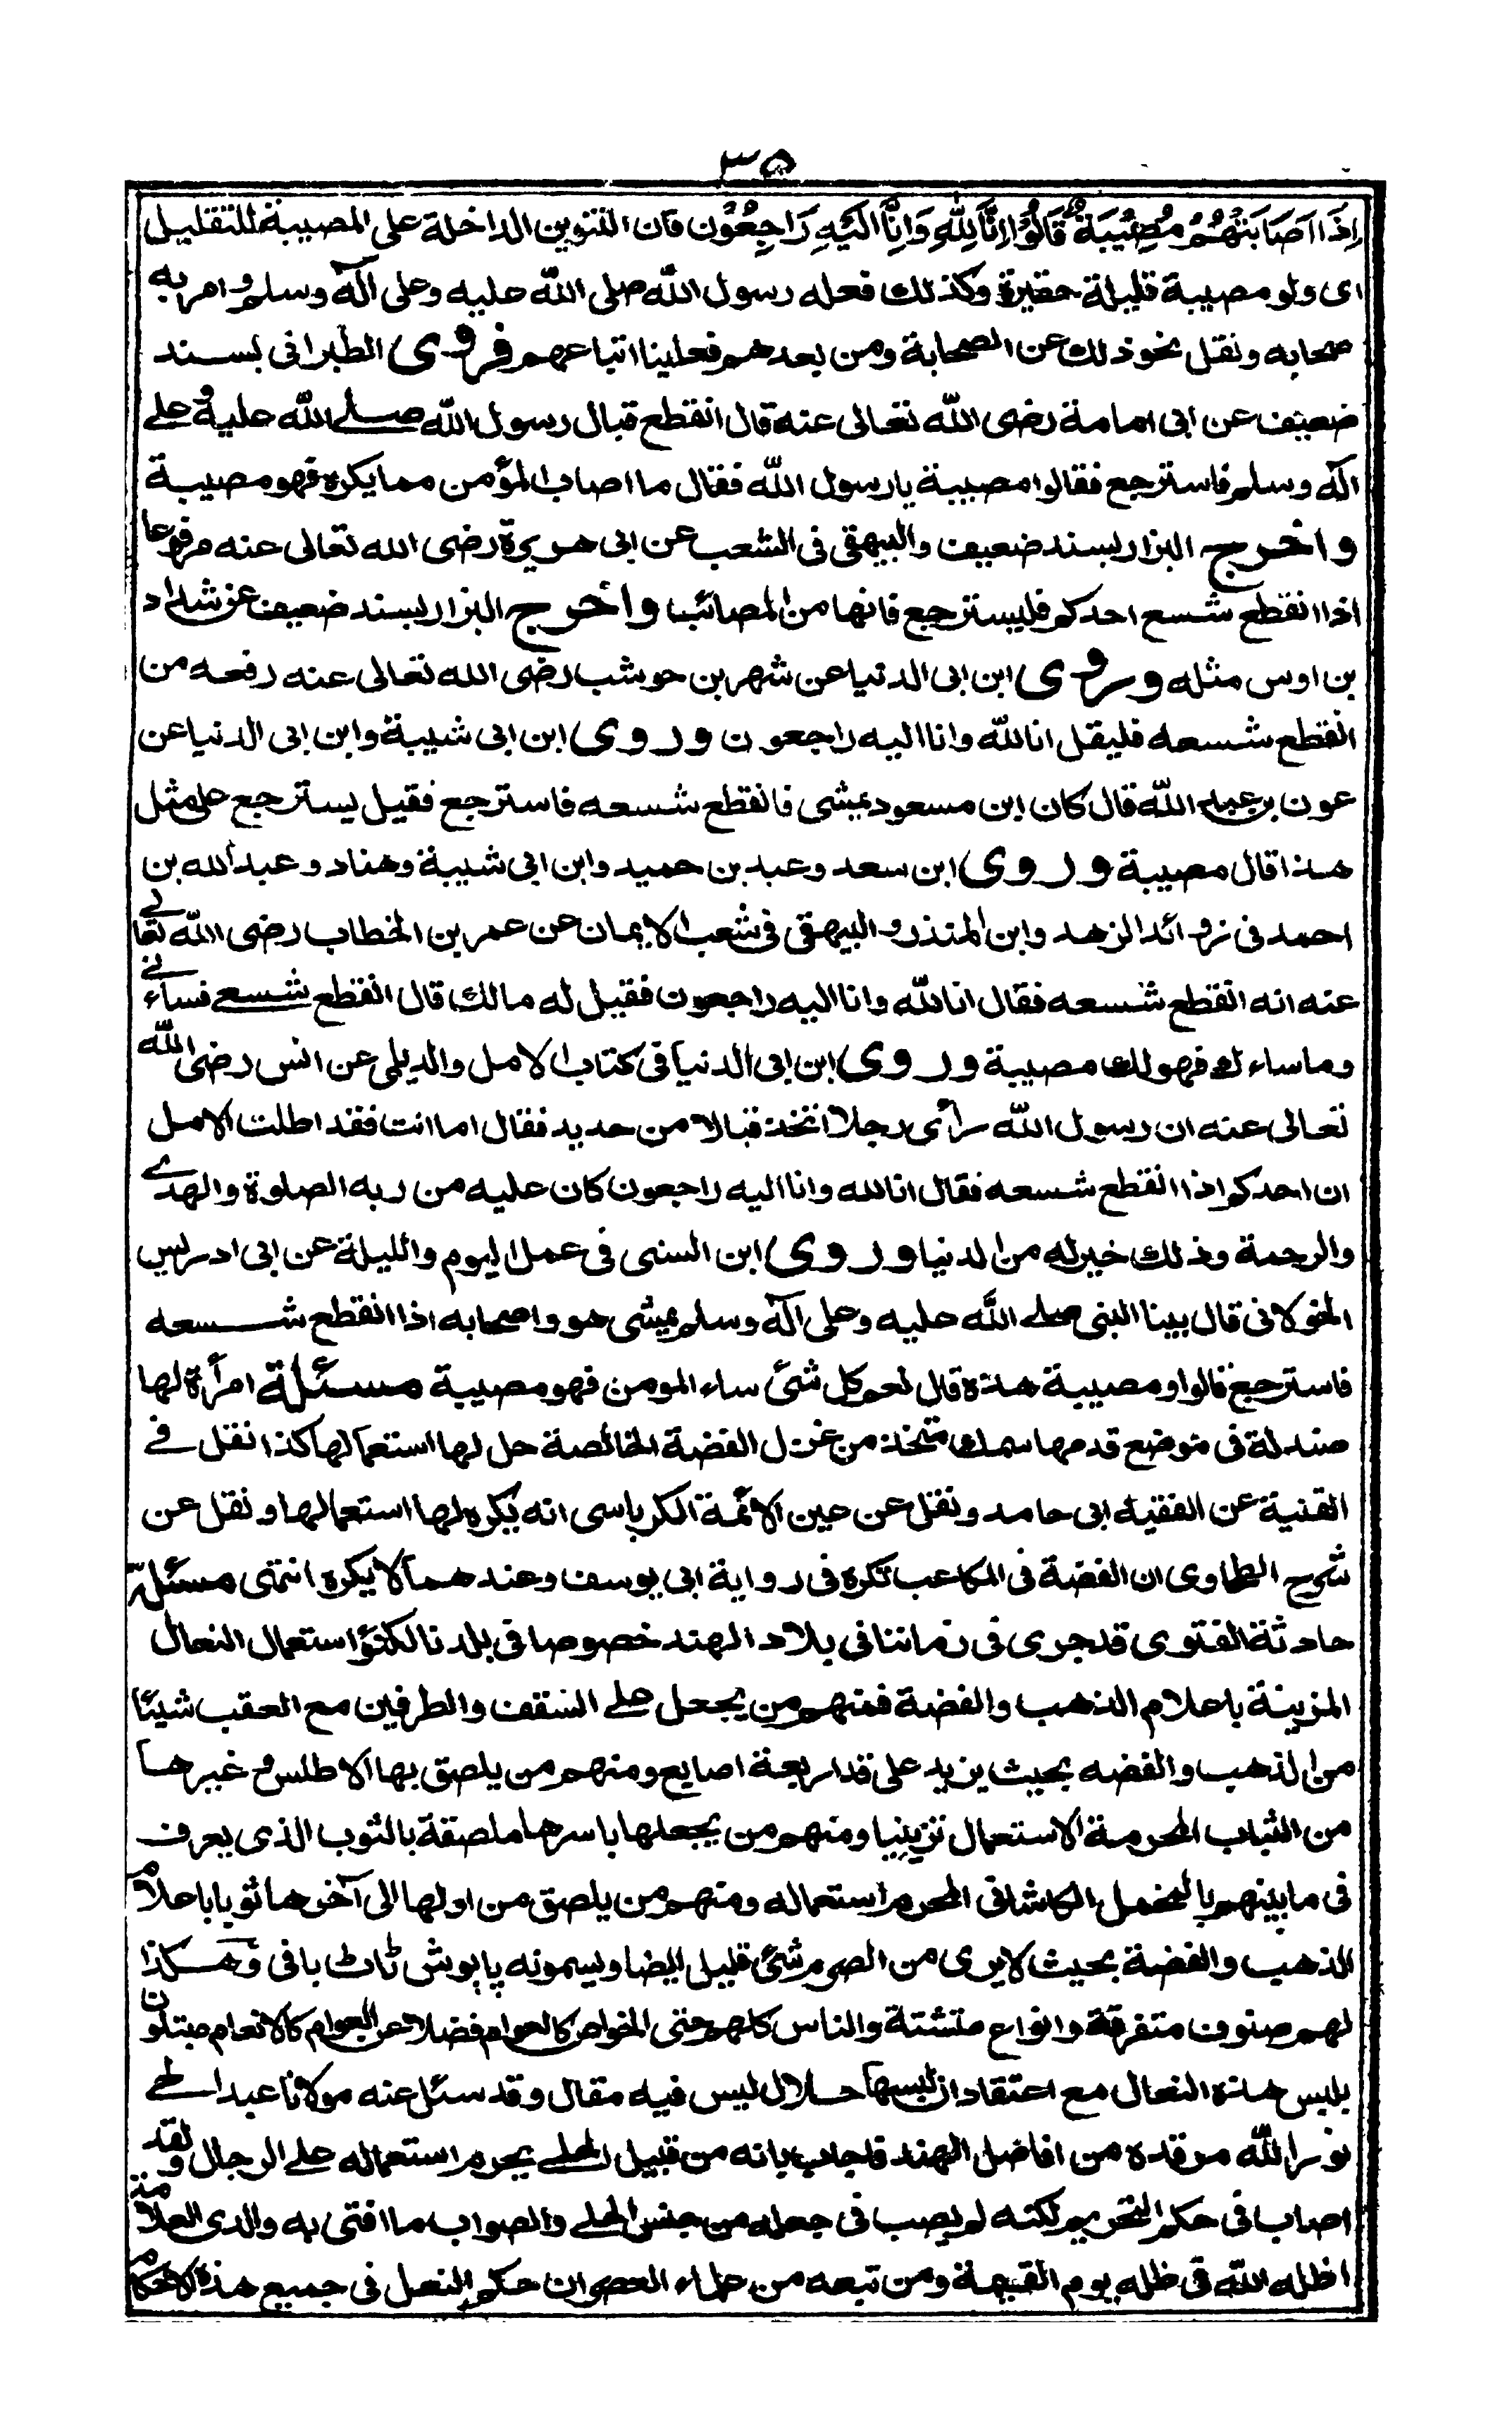 ٣٥
اِذَا اَصَابَتْهُمْ مُصِيْبَةٌ قَالُوْا اِنَّا لِلّٰهِ وَاِنَّا اِلَيْهِ رَاجِعُوْن فان التنوين الداخلة على المصيبة للتقليل
اى ولو مصيبة قليلة حقيرة وكذلك فعله رسول الله صلى الله عليه وعلى آله وسلم وامر به
صحابه ونقل نحو ذلك عن الصحابة ومن بعدهم فعلينا اتباعهم فروى الطبرانى بسند
ضعيف عن ابى امامة رضى الله تعالى عنه قال انقطع قبال رسول الله صلے الله عليه وعلے
آله وسلم فاسترجع فقالوا مصيبة يا رسول الله فقال ما اصاب المؤمن مما يكره فهو مصيبة
واخرج البزار بسند ضعيف والبيهقى فى الشعب عن ابى هريرة رضى الله تعالى عنه مرفوعا
اذا انقطع شسع احدكم فليسترجع فانها من المصائب واخرج البزار بسند ضعيف عن شداد
بن اوس مثله وروى ابن ابى الدنيا عن شهر بن حوشب رضى الله تعالى عنه رفعه من
انقطع شسعه فليقل انا لله وانا اليه راجعون وروى ابن ابى شيبة وابن ابى الدنيا عن
عون بن عبد الله قال كان ابن مسعود يمشى فانقطع شسعه فاسترجع فقيل يسترجع على مثل
هذا قال مصيبة وروى ابن سعد وعبد بن حميد وابن ابى شيبة وهناد وعبد الله بن
احمد فى زوائد الزهد وابن المنذر والبيهقى فى شعب الايمان عن عمر بن الخطاب رضى الله تعالے
عنه انه انقطع شسعه فقال انا لله وانا اليه راجعون فقيل له مالك قال انقطع شسعے فساءنے
وما ساءك فهو لك مصيبة وروى ابن ابى الدنيا فى كتاب الامل والديلمى عن انس رضى الله
تعالى عنه ان رسول الله رأى رجلا اتخذ قبالا من حديد فقال اما انت فقد اطلت الامل
ان احدكم اذا انقطع شسعه فقال انا لله وانا اليه راجعون كان عليه من ربه الصلوة والهدے
والرحمة وذلك خير له من الدنيا وروى ابن السنى فى عمل اليوم والليلة عن ابى ادريس
الخولانى قال بينا النبى صلے الله عليه وعلى آله وسلم يمشى هو واصحابه اذا انقطع شسعه
فاسترجع فالوا ومصيبة هذه قال نعم كل شئ ساء المومن فهو مصيبة مسئلة امرأة لها
صندلة فى موضع قدمها سمك متخذ من غزل الفضة الخالصة حل لها استعمالها كذا نقل فے
القنية عن الفقيه ابى حامد ونقل عن عين الائمة الكرباسى انه يكره لها استعمالها ونقل عن
شرح الطحاوى ان الفضة فى المكاعب تكره فى رواية ابى يوسف وعندهما لا يكره انتهى مسئلة
حادثة الفتوى قد جرى فى زماننا فى بلاد الهند خصوصا فى بلدنا لكنؤ استعمال النعال
المزينة باعلام الذهب والفضة فمنهم من يجعل علے السقف والطرفين مع العقب شيئا
من الذهب والفضه بحيث يزيد على قدر اربعة اصابع ومنهم من يلصق بها الاطلس وغيرها
من الثياب المحرمة الاستعمال تزيينا ومنهم من يجعلها باسرها ملصقة بالثوب الذى يعرف
فى ما بينهم بالمخمل الكاشانى المحرم استعماله ومنهم من يلصق من اولها الى آخرها ثوبا باعلام
الذهب والفضة بحيث لا يرى من الصرم شئ قليل ايضا ويسمونه پاپوش ٹاٹ بافى وهكذا
لهم صنوف متفرقة وانواع متشتتة والناس كلهم حتى الخواص كالعوام فضلا عن العوام كالانعام مبتلون
بلبس هذه النعال مع اعتقاد ان لبسها حلال ليس فيه مقال وقد سئل عنه مولانا عبد الحے
نور الله مرقده من افاضل الهند فاجاب بانه من قبيل الحلے يحرم استعماله علے الرجال ولقد
اصاب فى حكم التحريم لكنه لم يصب فى جعله من جنس الحلے والصواب ما افتى به والدى العلامة
اظله الله فى ظله يوم القيمة ومن تبعه من علماء العصر ان حكم النعل فى جميع هذه الاحكام